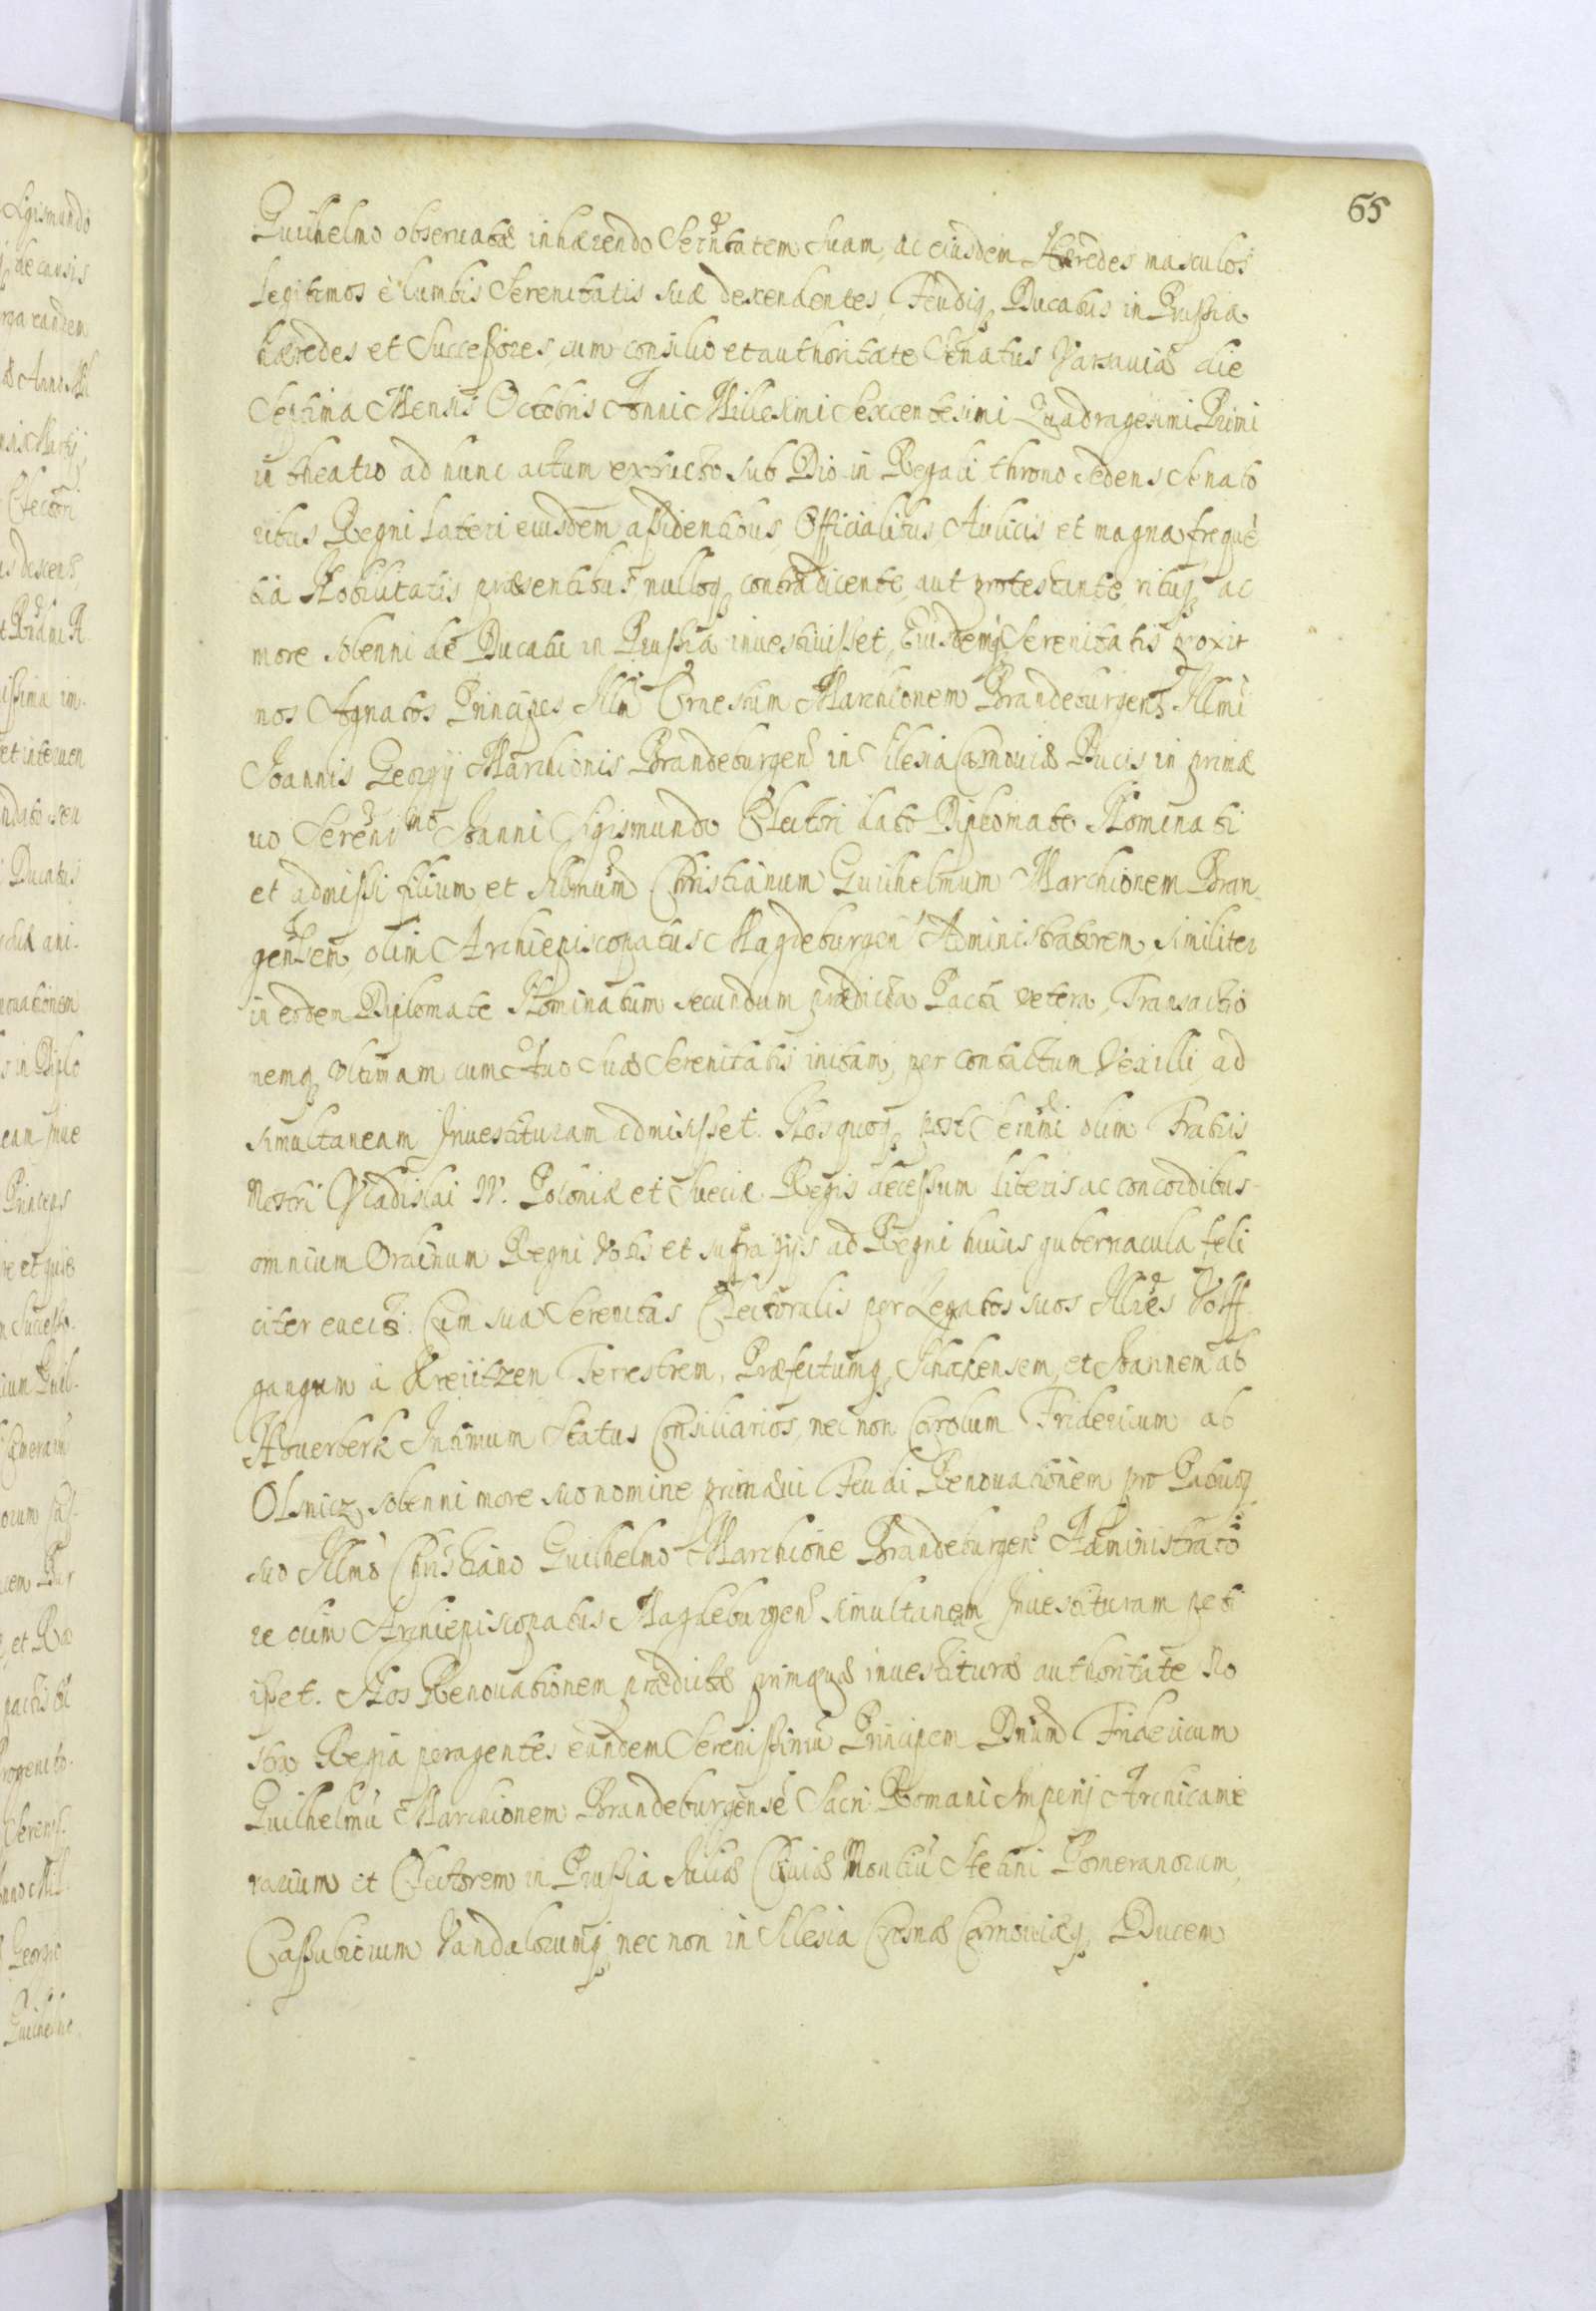 65
Guilhelmo observatæ inhærendo Serñtatem Suam, ac eiusdem Hæredes masculos
Legitimos è lumbis Serenitatis suæ descendentes, Feudiq₃ Ducatus in Prussia
hæredes et Successores, cum consilio et authoritate Senatus Varsaviæ die
Septima Mensis Octobris Anni Millesimi Sexcentesimi Quadragesimi Primi
in theatro ad hunc actum extructo sub Dio in Regali throno sedens Senato
ribus Regni lateri eiusdem assidentibus, Officialibus, Aulicis et magna frequē
tia Nobilitatis præsentibus, nulloq₃ contradicente, aut protestante, rituq₃ ac
more solenni de Ducatu in Prussia investivisset, Eiusdemq₃ Serenitatis proxi
nos Agnatos Principes Illm̃ Ernestum Marchionem Brandeburgens̃ Illmi
Joannis Georgij Marchionis Brandeburgen̄ in Silesia Carnoviæ Ducis in primæ
vo Sereni^mo Joanni Sigismundo Electori dato Diplomate Nominati
et admissi filium et Illmum Christianum Guilhelmum Marchionem Bran
gensem, olim Archiepiscopatus Magdeburgen̄ Administratorem, similiter
in eodem Diplomate Nominatum secundum prædicta Pacta vetera, Transactio
nemq₃ ultimam cum Avo Suæ Serenitatis initam, per contactum Vexilli, ad
simultaneam Investituram admisisset. Nos quoq₃ post Serñmi olim Fratris
Nostri Vladislai IV. Poloniæ et Sueciæ Regis decessum liberis ac concordibus
omnium Ordinum Regni votis et sufragijs ad Regni huius gubernacula feli
citer evecti. Cum sua Serenitas Electoralis per Legatos suos Illres Volff
gangum à Kreijtzen Terrestrem, Præfectumq₃ Schakensem, et Joannem ab
Hoverberk Intimum Status Consiliarios, nec non Carolum Fridericum ab
Olsnicz, solenni more suo nomine primævi Feudi Renovationem pro Patruoq₃
suo Illmo Christiano Guilhelmo Marchione Brandeburgen̄ Administrato
re olim Archiepiscopatus Magdeburgen̄ simultaneam Investituram peti
isset. Nos Renovationem prædictæ primævæ investituræ authoritate No
stra Regia peragentes eundem Serenissimū Principem Dnum Fridericum
Guilhelmū Marchionem Brandeburgensē Sacri Romani Imperij Archicame
rarium et Electorem in Prussia Juliæ Cliviæ Montiū Stetini Pomeranorum,
Cassubiorum Vandalorumq₃, nec non in Silesia Crosnæ Carnoviæq₃ Ducem